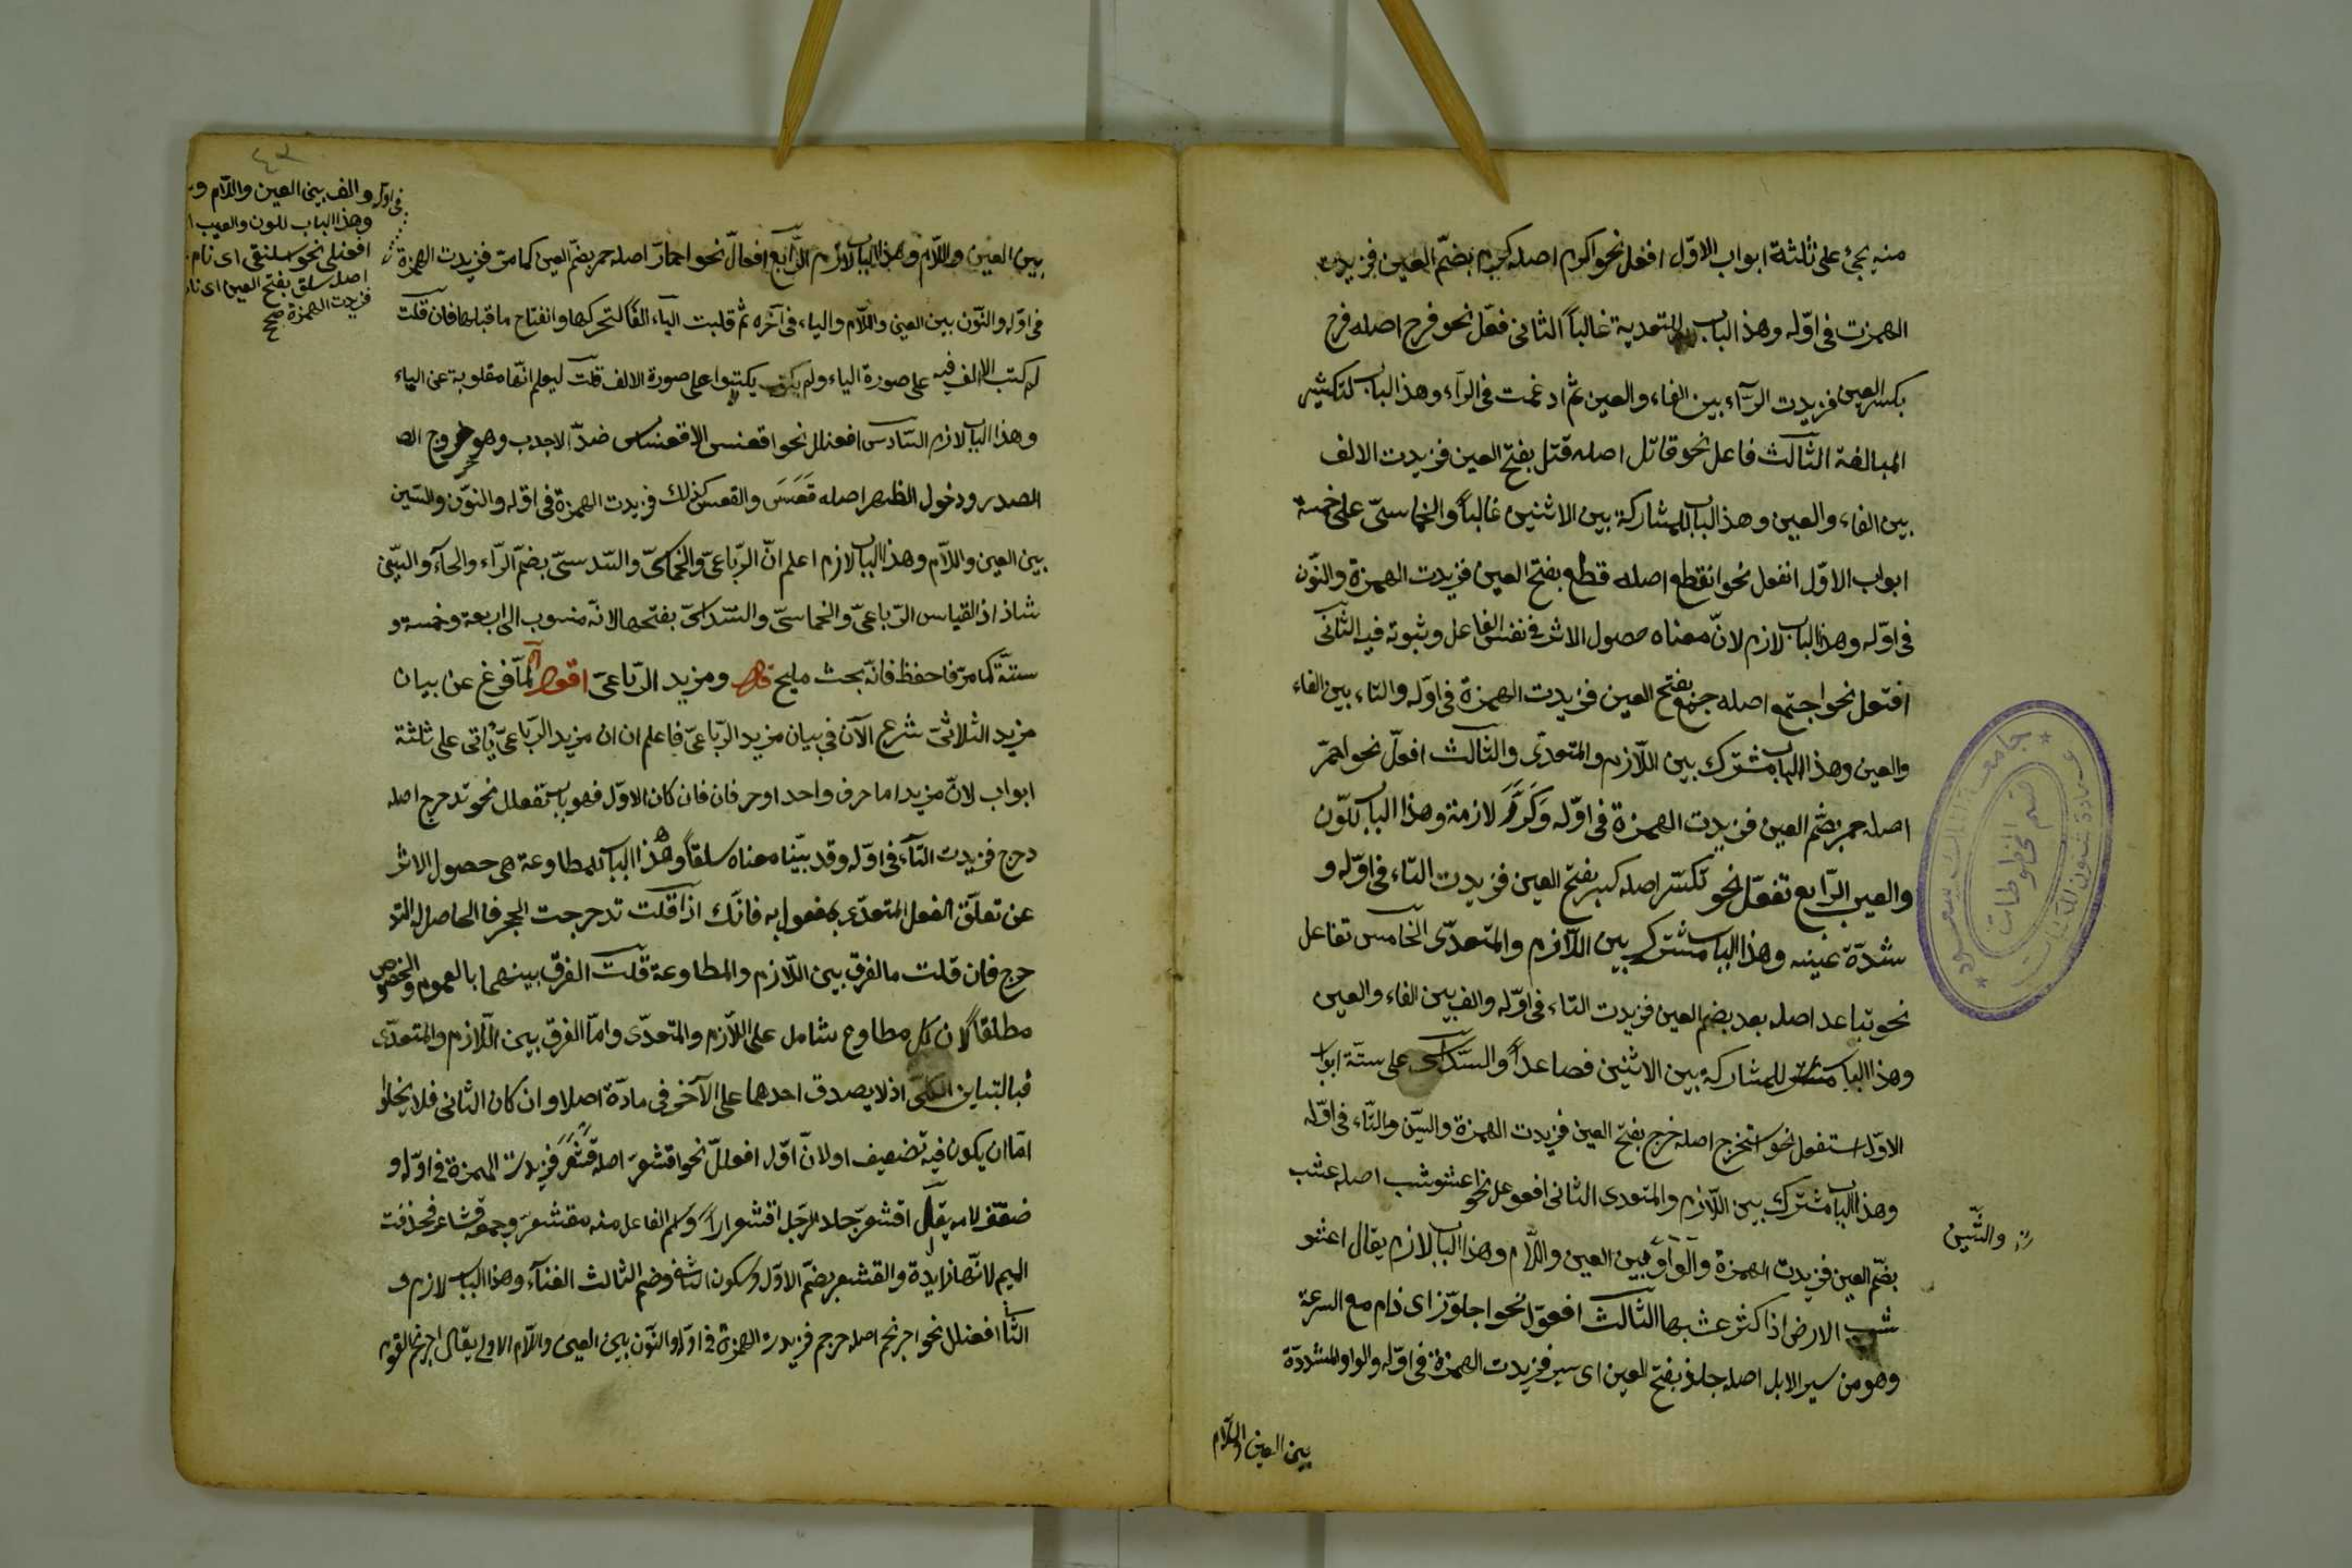 منه يجئ على ثلثة ابواب الاوّل افعل نحو اكرم اصله كرم بضمّ العين فزيدت
الهمزت فى اوّله وهذ الباب للتعدية غالباً الثانى فعّل نحو فرح اصله فرح
بكسر العين فزيدت الرّاء بين الفاء والعين ثمّ ادغمت فى الرآء وهذ الباب لتكثير
المبالغة الثالث فاعل نحو قاتل اصله قتل بفتح العين فزيدت الالف
بين الفاء والعين وهذ الباب للمشاركة بين الاثنين غالباً والخماسىّ على خمسة
ابواب الاوّل انفعل نحو انقطع اصله قطع بفتح العين فزيدت الهمزة والنّون
فى اوّله وهذ الباب لازم لانّ معناه حصول الاثر فى نفس الفاعل وثبوته فيه الثّانى
افتعل نحو اجتمع اصله جمع بفتح العين فزيدت الهمزة فى اوّله والتاء بين الفاء
والعين وهذ الباب مشترك بين اللّازم والمتعدّى والثالث افعلّ نحو احمرّ
اصله حمر بضمّ العين فزيدت الهمزة فى اوّله وكرّر لازمة وهذ الباب للّون
والعيب الرّابع تفعّل نحو تكسّر اصله كسر بفتح العين فزيدت التاء فى اوّله و
شدّة عينه وهذ الباب مشترك بين اللّازم والمتعدّى الخامس تفاعل
نحو تباعد اصله بعد بضم العين فزيدت التاء فى اوّله والف بين الفاء والعين
وهذ الباب للمشاركة بين الاثنين فصاعداً والسّداسى على ستّة ابواب
الاوّل استفعل نحو استخرج اصله خرج بفتح العين فزيدت الهمزة والسّين والتّاء فى اوّله
وهذ الباب مشترك بين اللّازم والمتعدى الثانى افعوعل نحو اعشوشب اصله عشب
بضّم العين فزيدت الهمزة والواو بين العين واللّام وهذ الباب لازم يقال اعشو
شب الارض اذا كثر عشبها الثالث افعوّل نحو اجلوّز اى دام مع السرعة
وهو من سير الابل اصله جلذ بفتح العين اى سير فزيدت الهمزة فى اوّله والواو المشددّة
والشّين
بين العين واللّام
جامعة الملك سعود
عمادة شئون المكتبات
قسم المخطوطات
٤٢
فى اوّله والف بين العين واللّام و
وهذ الباب للون والعيب
افعنلى نحو اسلنقى اى نام
اصله سلق بفتح العين اى نا
فزيدت الهمزة صح
بين العين واللّام وهذ الباب لازم الرّابع افعالّ نحو احمارّ اصله حمر بضمّ العين كما مرّ فزيدت الهمزة
فى اوّله والنّون بين العين واللّام والياء فى آخره ثمّ قلبت الياء الفاً لتحركها وانفتاح ما قبلها فان قلت
لم كتب الالف فيه على صورة الياء ولم يكتبوا على صورة الالف قلت ليعلم انّها مقلوبة عن الياء
وهذ الباب لازم السّادس افعنلل نحو اقعنسس الاقعنساس ضدّ الاحدب وهو خروج الص
الصدر ودخول الظهر اصله قعس والقعس كذلك فزيدت الهمزة فى اوّله والنوّن والسّين
بين العين واللّام وهذ الباب لازم اعلم انّ الرّباعىّ والخماسىّ والسّدسىّ بضمّ الرّاء والخاء والسّين
شاذ اذ القياس الرّباعىّ والخماسىّ والسّداسىّ بفتحها لانّه منسوب الى اربعة وخمسة و
ستّة كما مرّ فاحفظ فانّه بحث مليح قال ومزيد الرّباعىّ اقول لمّا فرغ عن بيان
مزيد الثلاثىّ شرع الآن فى بيان مزيد الرّباعىّ فاعلم ان ان مزيد الرّباعىّ ياتى على ثلثة
ابواب لانّ مزيد اما حرف واحد او حرفان فان كان الاوّل فهو باب تفعلل نحو تدحرج اصله
دحرج فزيدت التّاء فى اوّله وقد بيّنا معناه سلفاً وهذ الباب للمطاوعة هى حصول الاثر
عن تعلّق الفعل المتعدّى بمفعول به فانّك اذا قلت تدحرجت الحجر فالحاصل له التد
حرج فان قلت ما الفرق بين اللّازم والمطاوعة قلت الفرق بينهما بالعموم والخصوص
مطلقاً لان كل مطاوع شامل على اللّازم والمتعدّى وامّا الفرق بين اللّازم والمتعدّى
فبالتباين الكلىّ اذ لا يصدق احدهما على الآخر فى مادّة اصلا وان كان الثانى فلا يخلوا
امّا ان يكون فيه تضعيف او لا فانّ اوّل افعللّ نحو اقشعرّ اصله قشعر فزيدت الهمزة فى اوّله و
ضعّف لامه يقال اقشعرّ جلد الرّجل اقشعراراً واسم الفاعل منه مقشعرّ وجمعه قشاعر فحذفت
الميم لانّها زايدة والقشعر بضمّ الاوّل وسكون الثانى وضم الثالث القثاء وهذ الباب لازم و
الثا افعنلل نحو احرنجم اصله حرجم فزيدت الهمزة فى اوّله والنّون بين العين واللّام الاولى يقال احرنجم القوم